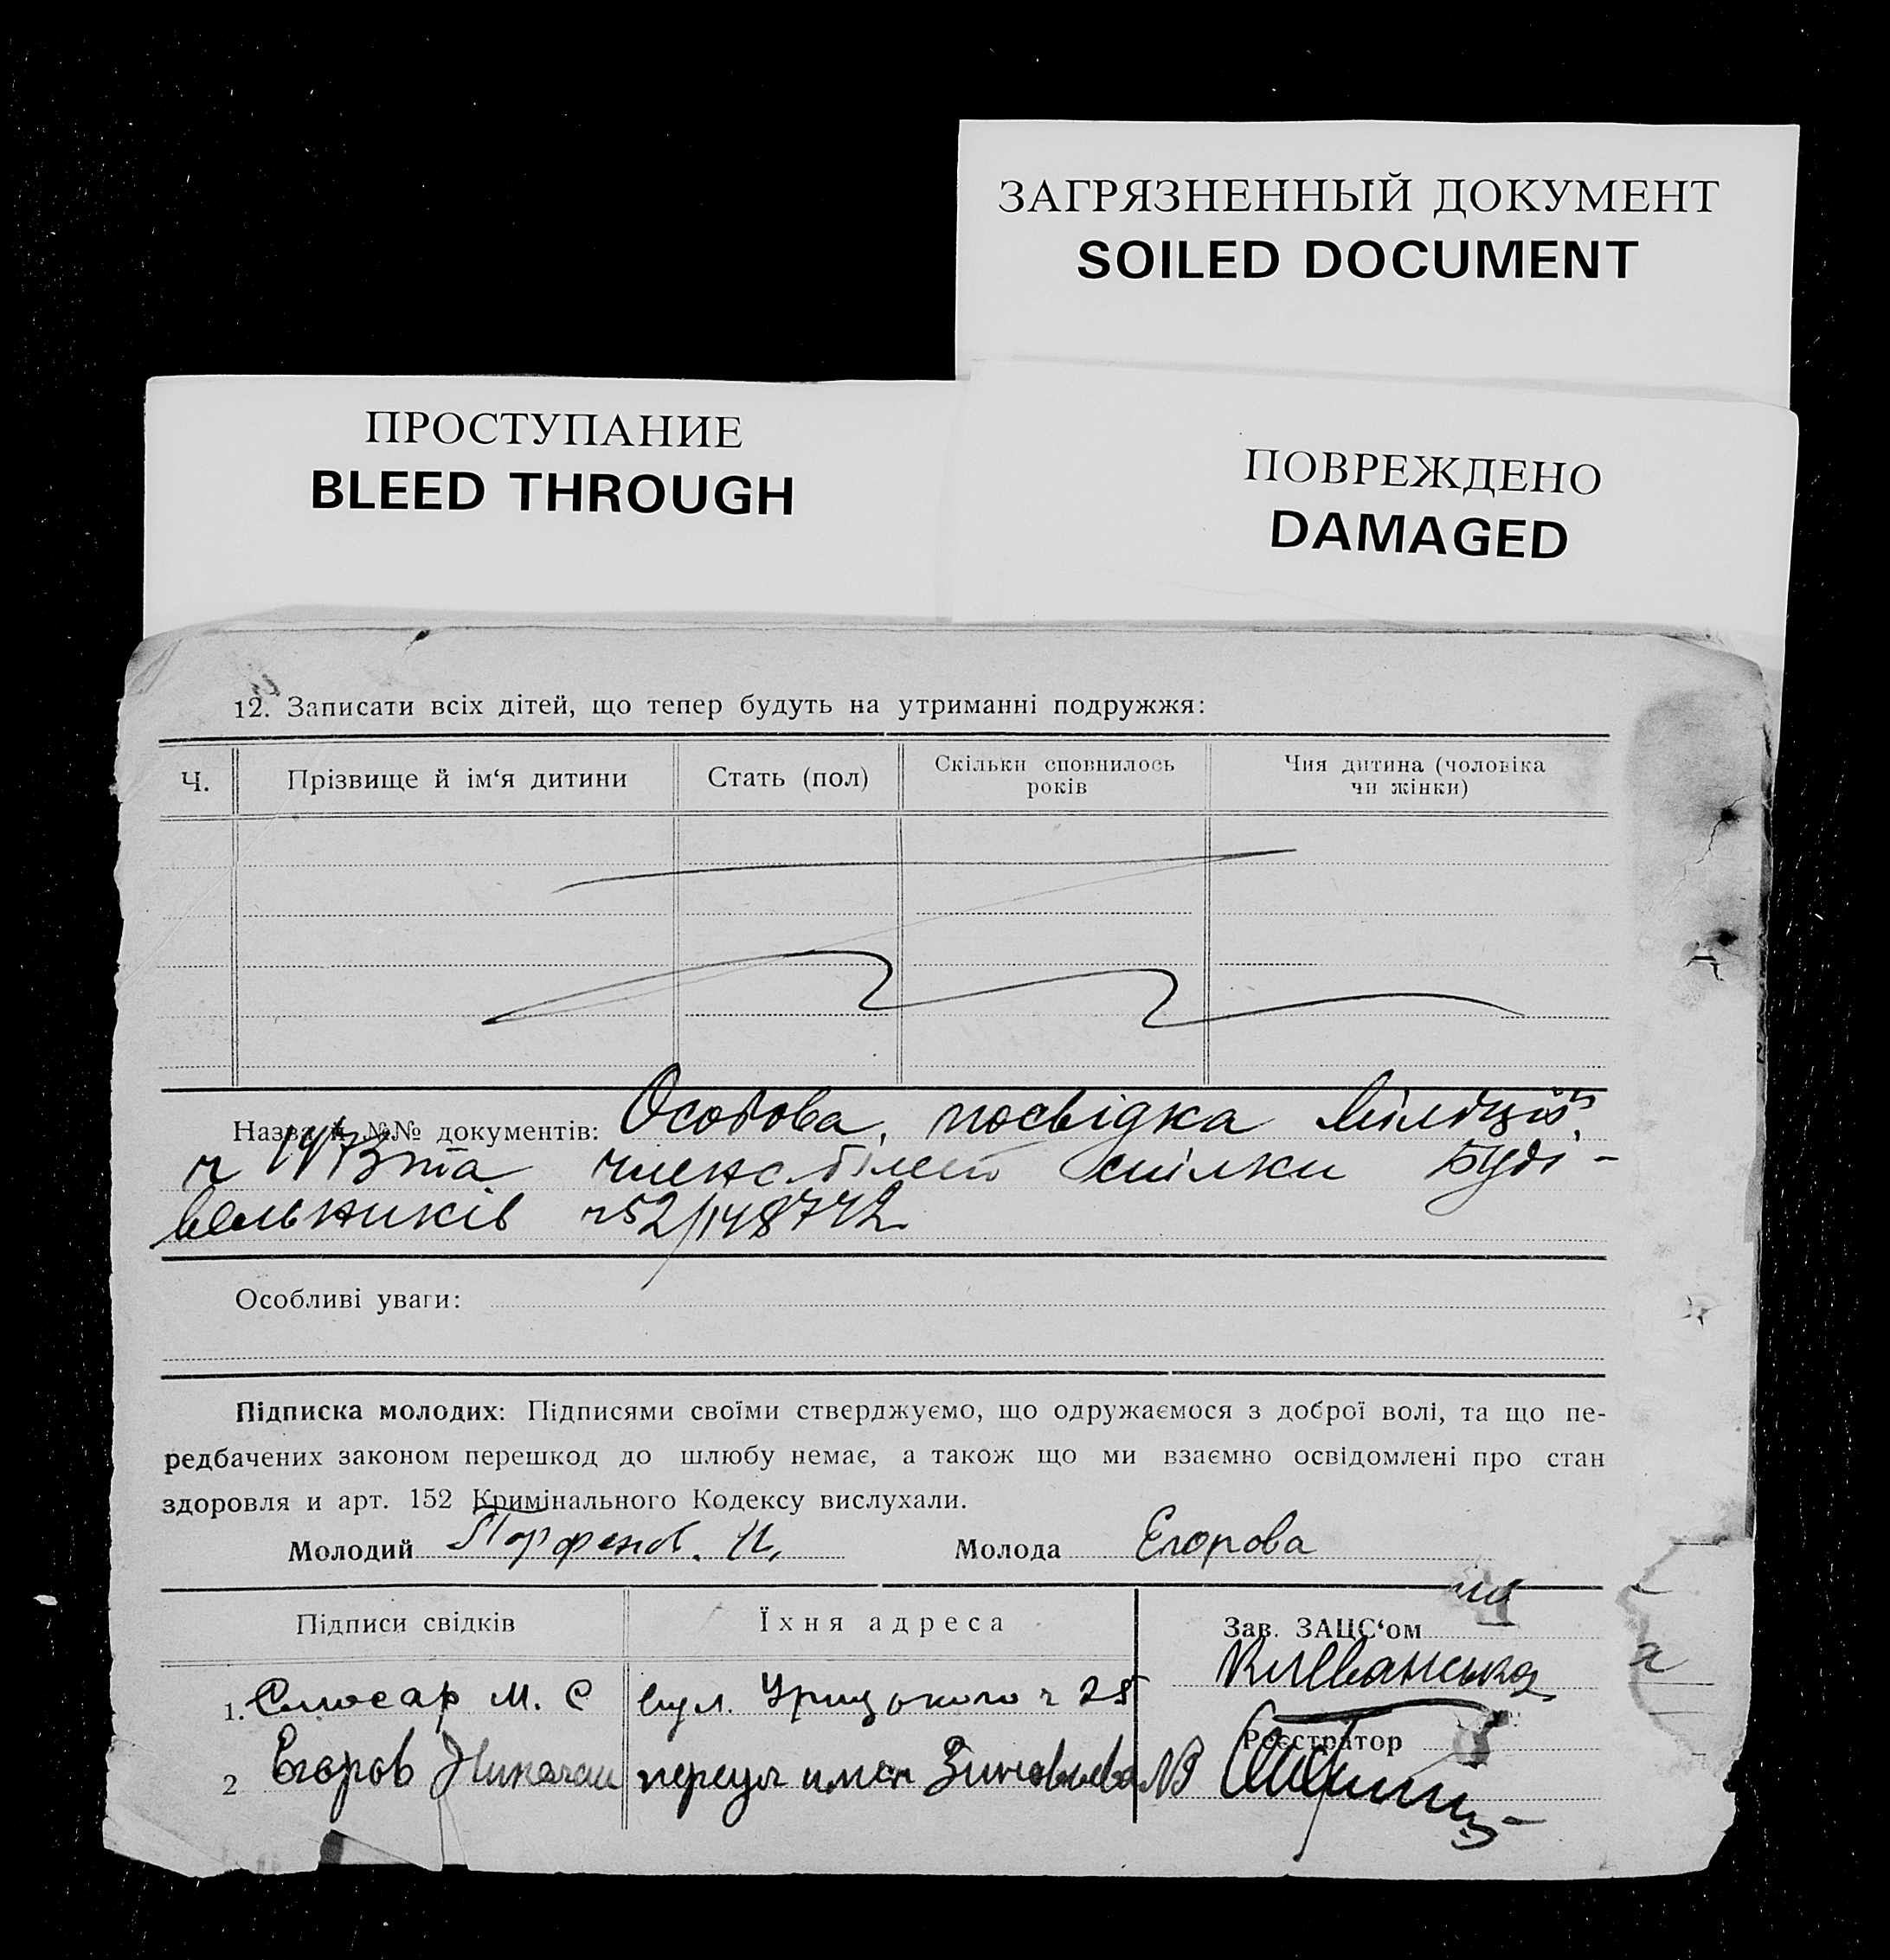 ЗАГРЯЗНЕННЫЙ ДОКУМЕНТ
SOILED DOCUMENT
ПРОСТУПАНИЕ
BLEED THROUGH
ПОВРЕЖДЕНО
DAMAGED
12. Записати всіх дітей, що тепер будуть на утриманні подружжя:
Ч. Прізвище й ім‘я дитини Стать (пол) Скільки сповнилось років Чия дитина (чоловіка чи жінки)
Назва й №№ документів: Особова посвідка Міліції
ч 1473 та спілки Буді-
вельників ч 52/148742
Особливі уваги:
Підписка молодих: Підписями своїми стверджуємо, що одружаємося з доброї волі, та що пе-
редбачених законом перешкод до шлюбу немає, а також що ми взаємно освідомлені про стан
здоровля и арт. 152 Кримінального Кодексу вислухали.
Молодий Парфенов. И. Молода Егорова
Підписи свідків Їхня адреса Зав. ЗАЦС‘ом
1. Слюсар М. С вул. Урицького ч 25
Реєстратор
2 Егоров Николай переул имен Зиновьева